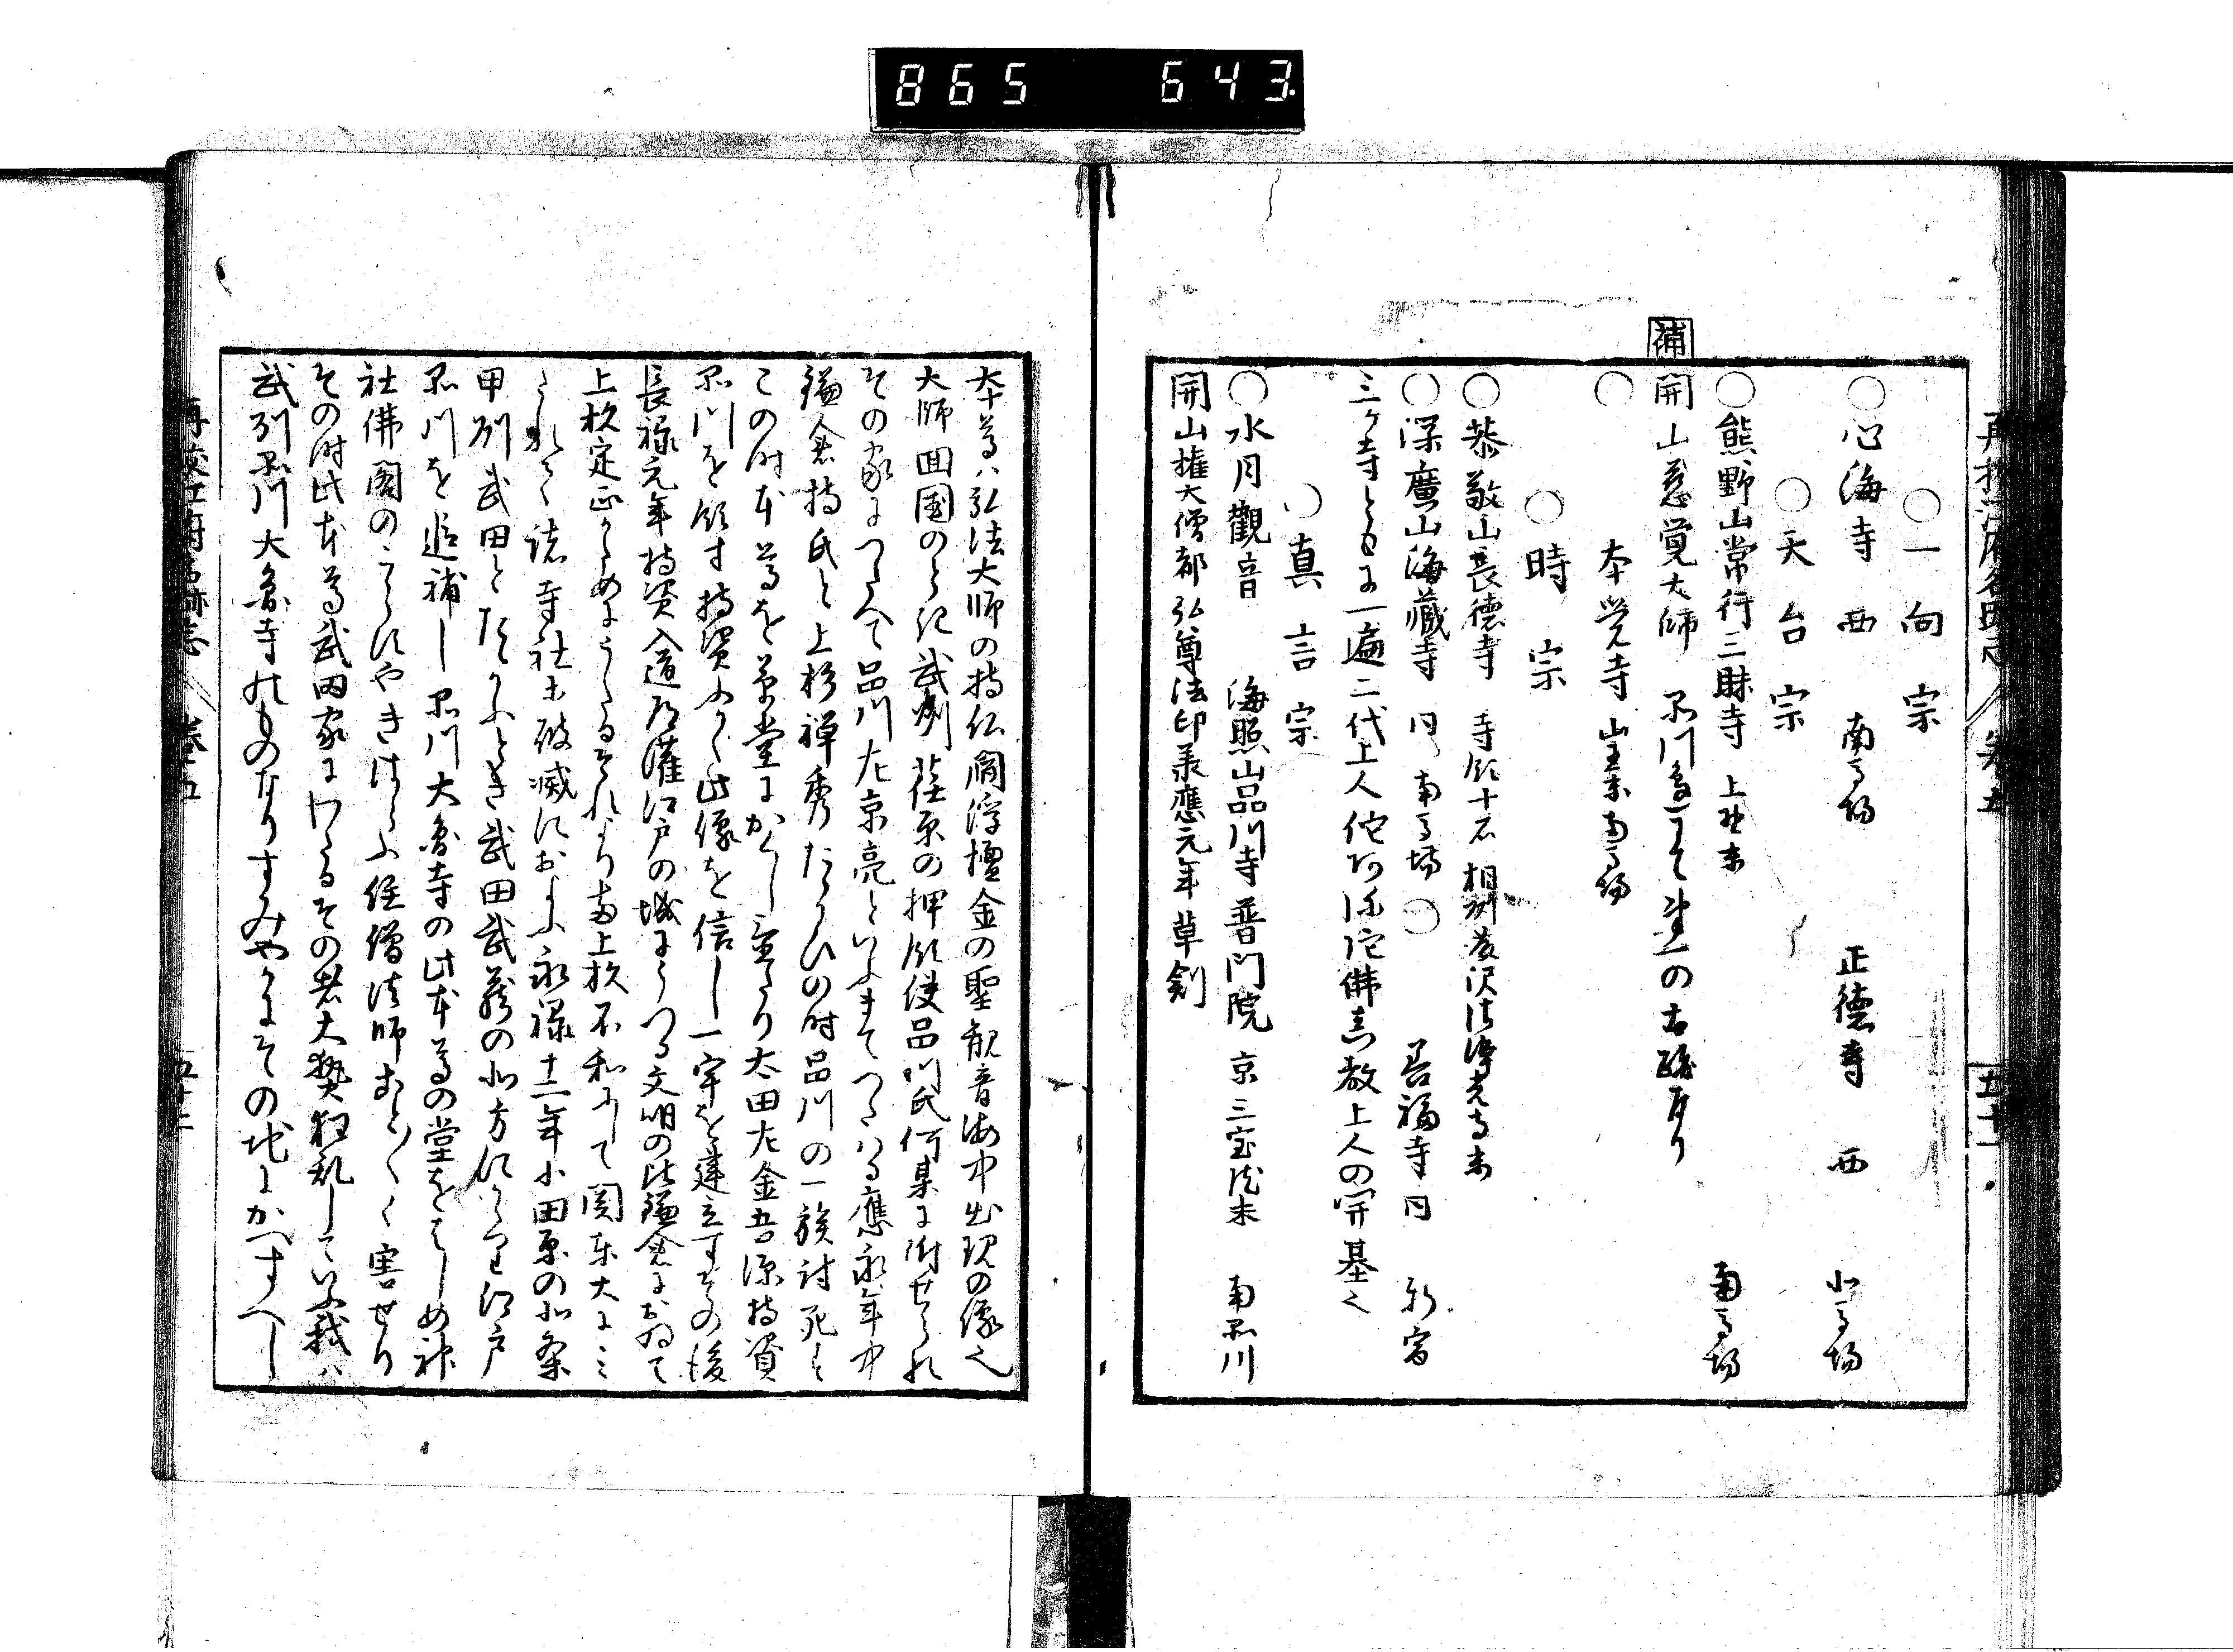 865 643
補
○一向宗
○心海寺 西 南馬場 正德寺 西 北馬場
○天台宗
○熊野山常行三昧寺 上野末 南馬場
開山慈覚大師 品川
の古跡なり
○ 本覚寺 南馬場
○時宗
○恭敬山長徳寺 寺領十石 相州藤沢清浄光寺末
○深廣山海藏寺 同 南馬場 ○ 善福寺 同 新宿
三ケ寺ともに一遍二代上人佗阿弥陀佛真教上人の開基也
○真言宗
○水月觀音 海照山品川寺普門院 京三宝院末 南品川
開山権大僧都弘尊法印承應元年草創
本尊ハ弘法大師の持仏閻浮檀金の聖観音海中出現の像也
大師回國のとき武州荏原の押領使品川氏何某に附せられ
その家につたへて品川左京亮といふまてつたハる應永年中
鎌倉持氏と上杉禅秀たゝかひの時品川の一族討死す
この時本尊を草堂にかくし置たり太田左金吾源持資
品川を領す持資ふかく此像を信し一宇を建立すその後
長禄元年持資入道道灌江戸の城にうつる文明の比鎌倉におゐて
上杦定正かためにうたるそれより両上杦不和にして関東大にみ
たれて諸寺社も破滅におよふ永禄十二年小田原の北条
甲州武田とたゝかふとき武田武藏の北方にうつり江戸
品川を追補し品川大圓寺の此本尊の堂をはしめ神
社佛閣のこらすやきはらふ経僧法師ことことく害せり
その時此本尊武田家にわたるその者大熱狂乱していふ我ハ
武列品川大圓寺のものなりすみやかにその地にかへすへし